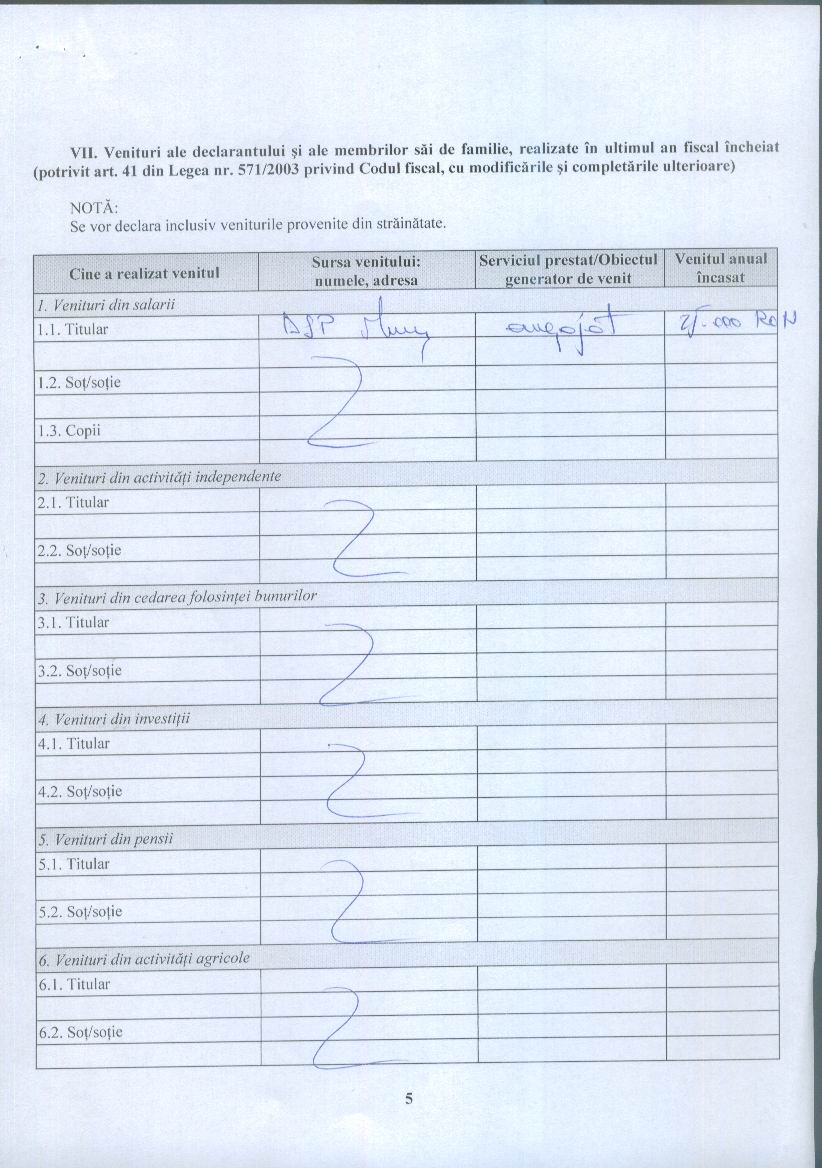 VII. Venituri ale declarantului și ale membrilor săi de familie, realizate în ultimul an fiscal încheiat
(potrivit art. 41 din Legea nr. 571/2003 privind Codul fiscal, cu modificările și completările ulterioare)
NOTĂ:
Se vor declara inclusiv veniturile provenite din străinătate.
Cine a realizat venitul Sursa venitului: numele, adresa Serviciul prestat/Obiectul generator de venit Venitul anual încasat
1. Venituri din salarii
1.1. Titular DSP angajat 000 RON
1.2. Soț/soție
1.3. Copii
2. Venituri din activități independente
2.1. Titular
2.2. Soț/soție
3. Venituri din cedarea folosinței bunurilor
3.1. Titular
3.2. Soț/soție
4. Venituri din investiții
4.1. Titular
4.2. Soț/soție
5. Venituri din pensii
5.1. Titular
5.2. Soț/soție
6. Venituri din activități agricole
6.1. Titular
6.2. Soț/soție
5